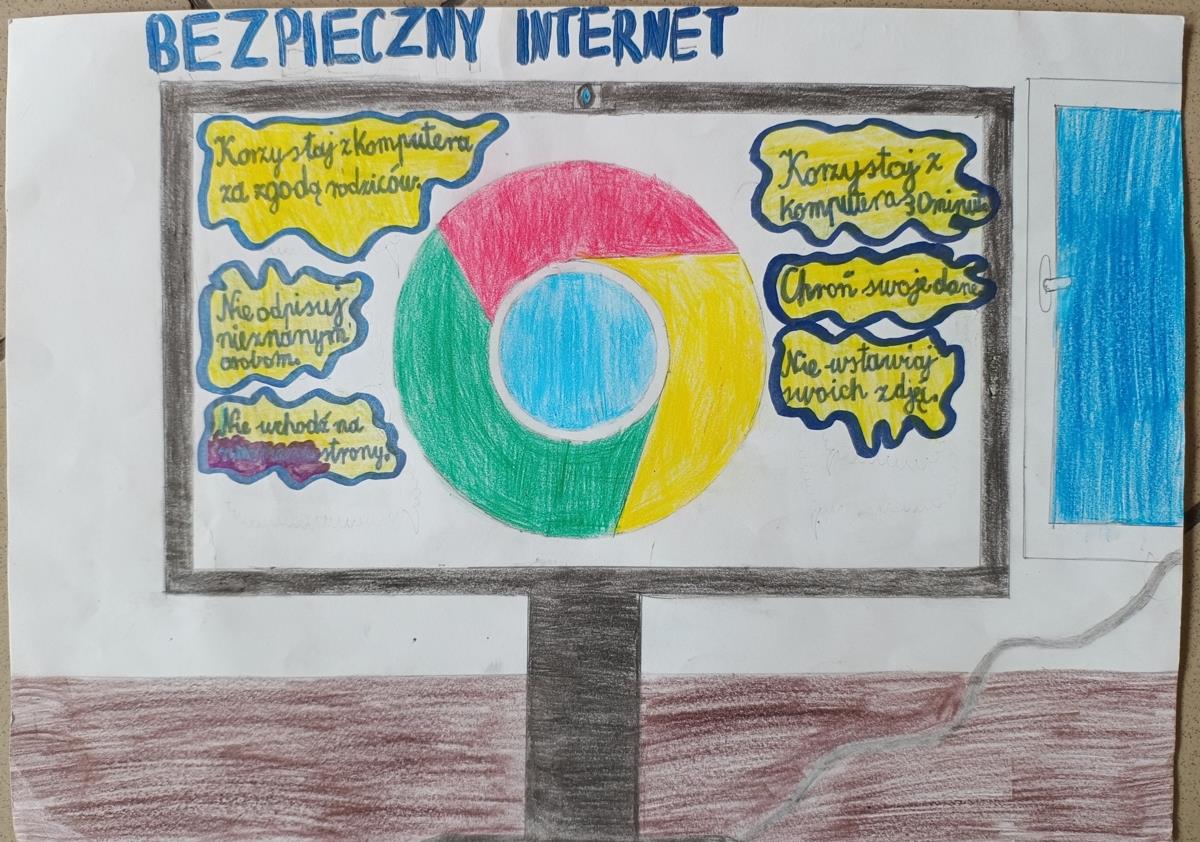 BEZPIECZNY INTERNET
Korzystaj z komputera
za zgodą rodziców.
Nie odpisuj
nieznanym
osobom.
Nie wchodź na
strony.
Korzystaj z
komputera 30 minut.
Chroń swoje dane
Nie wstawiaj
swoich zdjęć.